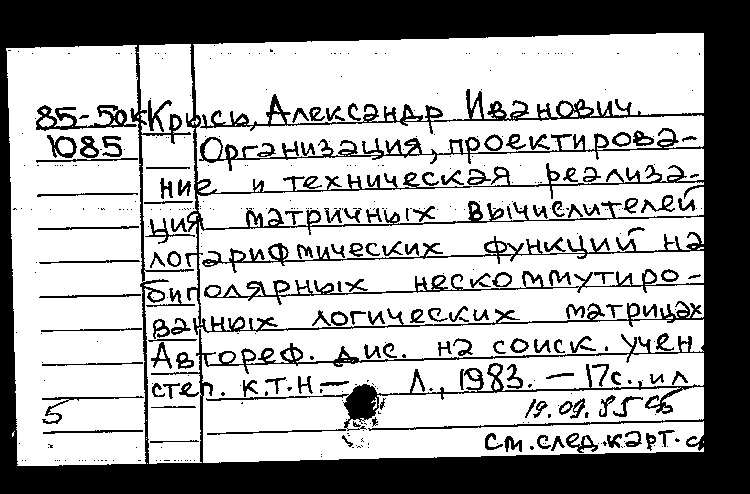 85-50к Крысь, Александр Иванович.
1085 Организация, проектирова-
ние и техническая реализа-
ция матричных вычислителей
логарифмических функций на
биполярных нескоммутиро-
ванных логических матрицах
Автореф. дис. на соиск. учен.
степ. к.т.н.— Л., 1983. — 17с., ил
5 19.09.85 сб
см. след. карт.